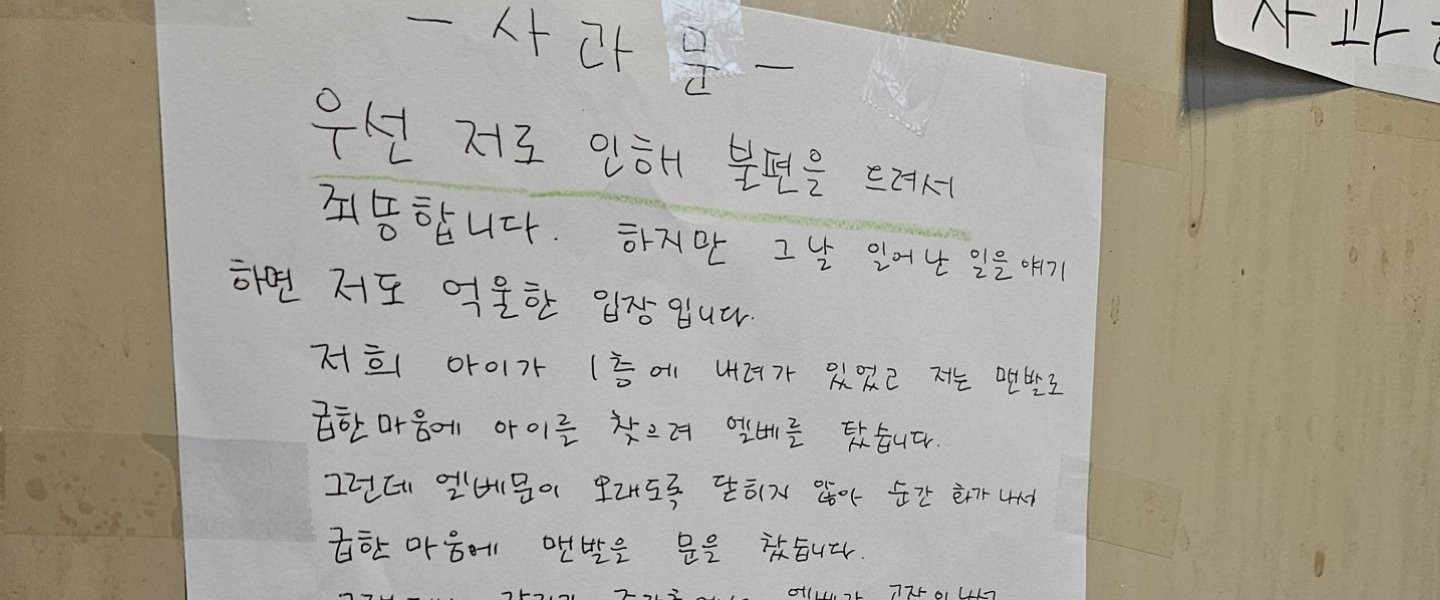 - 사과문 -
사과
우선 저로 인해 불편을 드려서
죄송합니다. 하지만 그날 일어난 일을 얘기
하면 저도 억울한 입장입니다.
저희 아이가 1층에 내려가 있었고 저는 맨발로
급한 마음에 아이를 찾으려 엘베를 탔습니다.
그런데 엘베문이 오래도록 닫히지 않아 순간 화가 나서
급한 마음에 맨발을 문을 찼습니다.